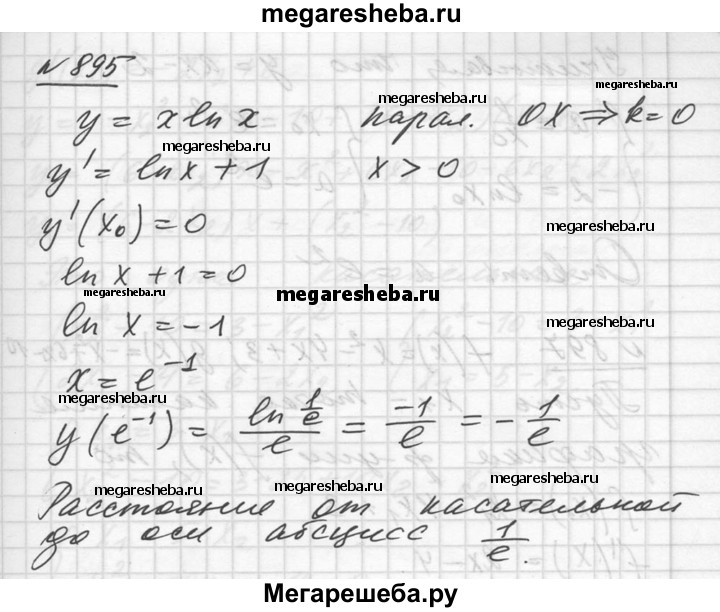 megaresheba.ru
№ 895
megaresheba.ru
megaresheba.ru
y = x ln x парал. OX ⇒ k = 0
megaresheba.ru
y' = ln x + 1 x > 0
y'(x₀) = 0
ln x + 1 = 0
megaresheba.ru
megaresheba.ru
ln x = -1
megaresheba.ru
x = e⁻¹
y(e⁻¹) = (ln 1/e)/e = -1/e = -1/e
megaresheba.ru
megaresheba.ru
megaresheba.ru
Расстояние от касательной
до оси абсцисс 1/e.
Мегарешеба.ру